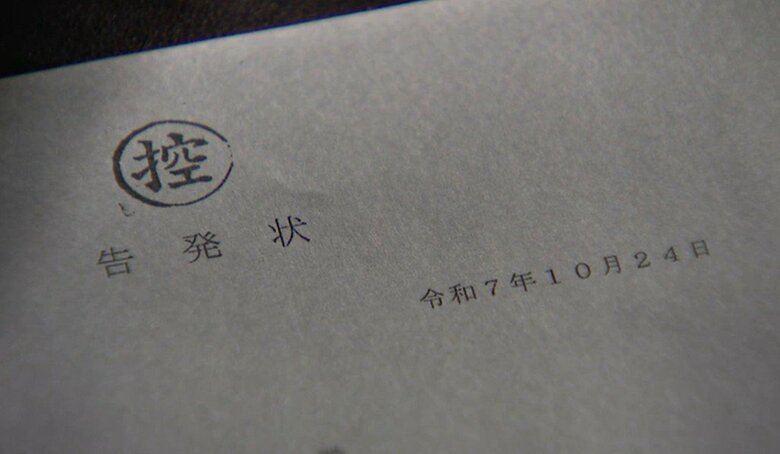 控
告発状
令和7年10月24日